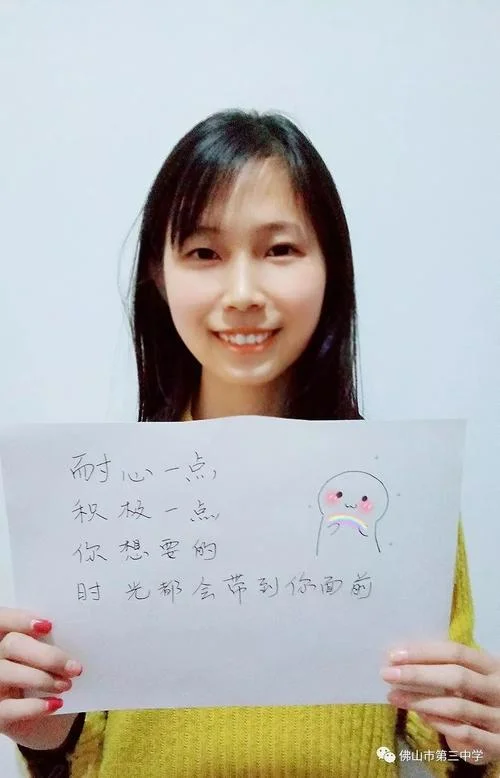 耐心一点,
积极一点,
你想要的
时光都会带到你面前
佛山市第三中学